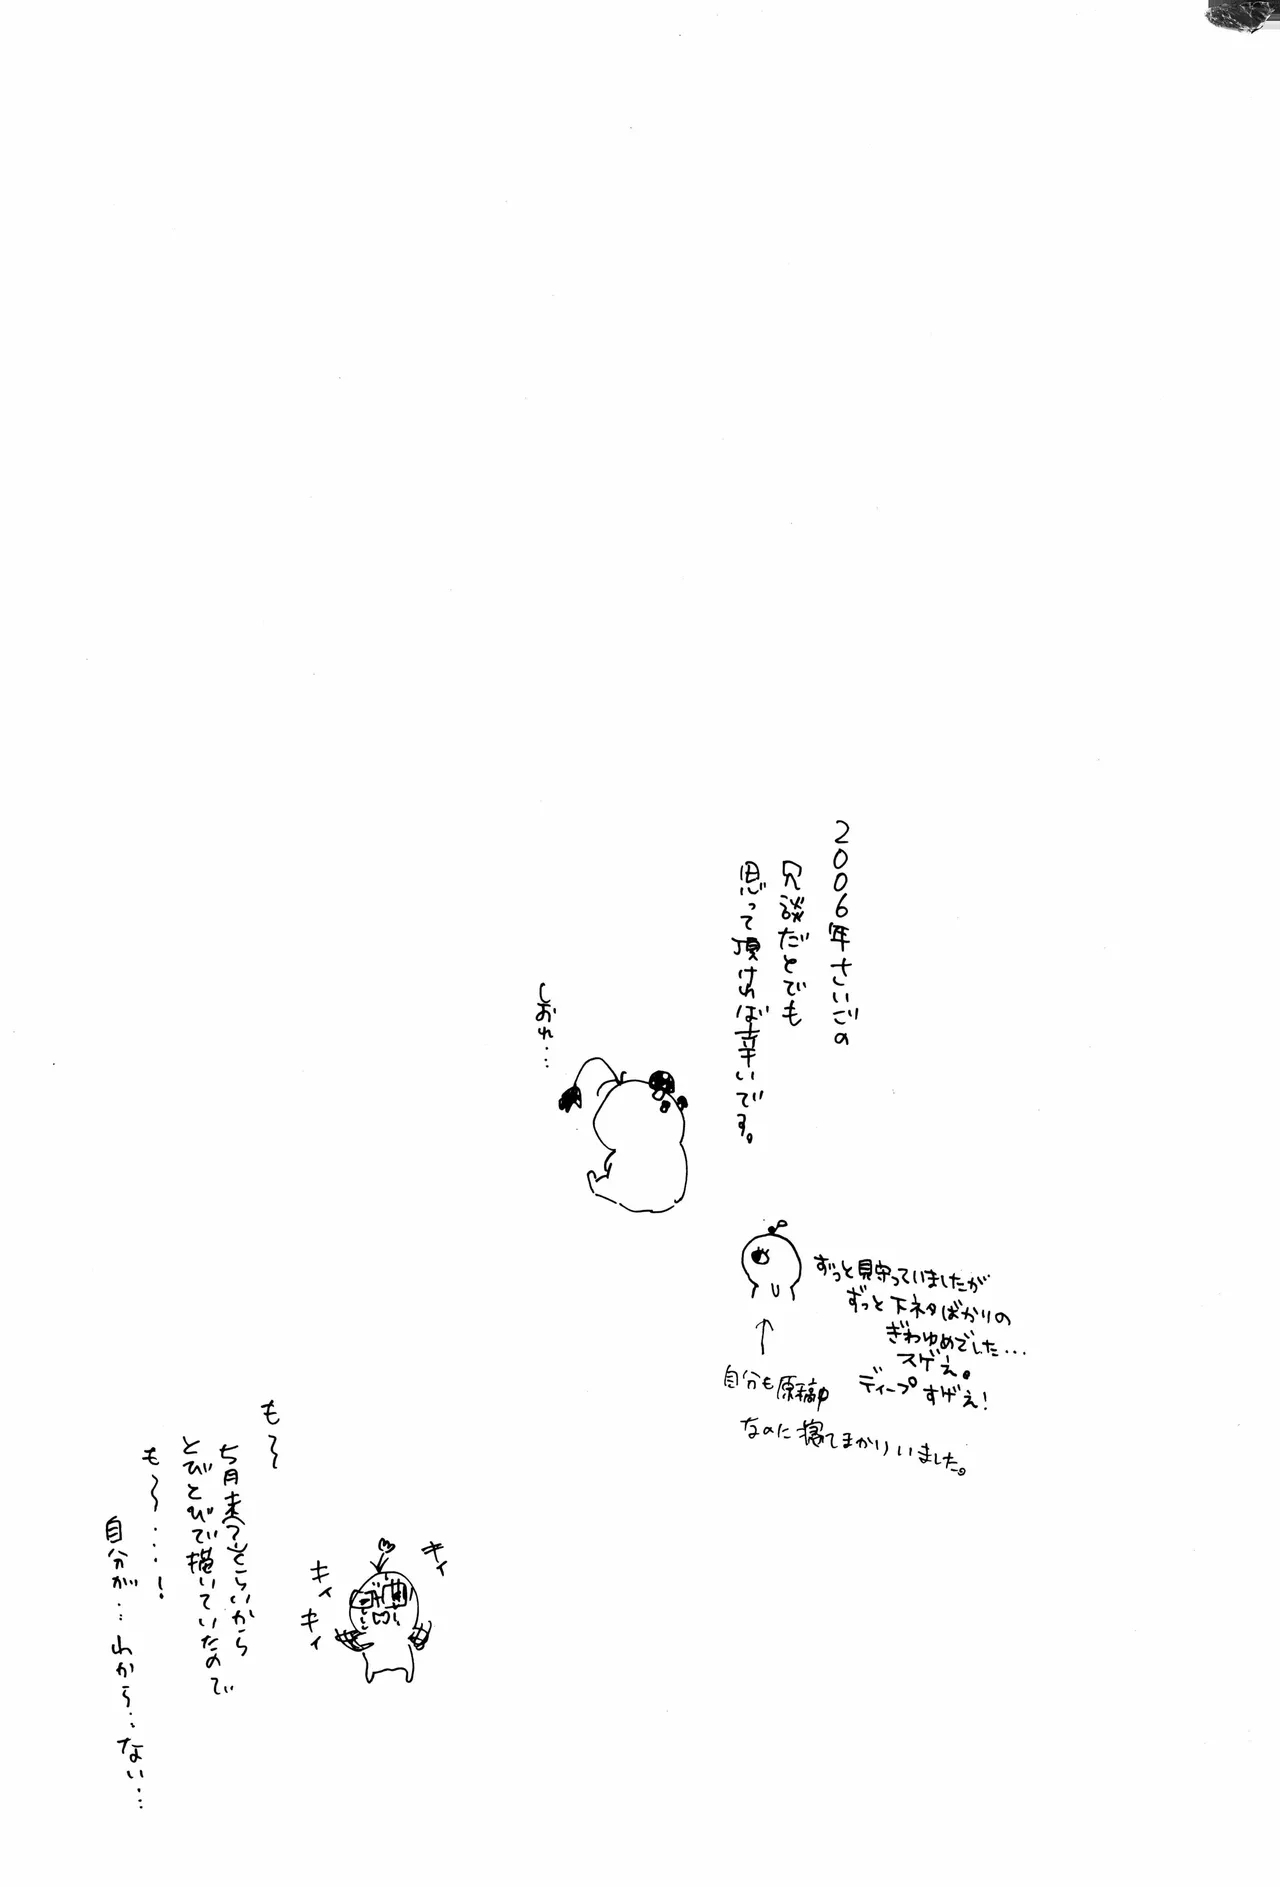 2006年さいごの
冗談だとでも
思って頂ければ幸いです。
しおれ…
ずっと見守っていましたが
ずっと下ネタばかりの
ぎわゆめでした…
スゲぇ。
ディープすげぇ！
自分も原稿中
なのに寝てまかりいました。
も〜〜
5月末(?)くらいから
とびとびで描いていたので
も〜〜…！
自分が…わから…ない…
キィ
キィ
キィ